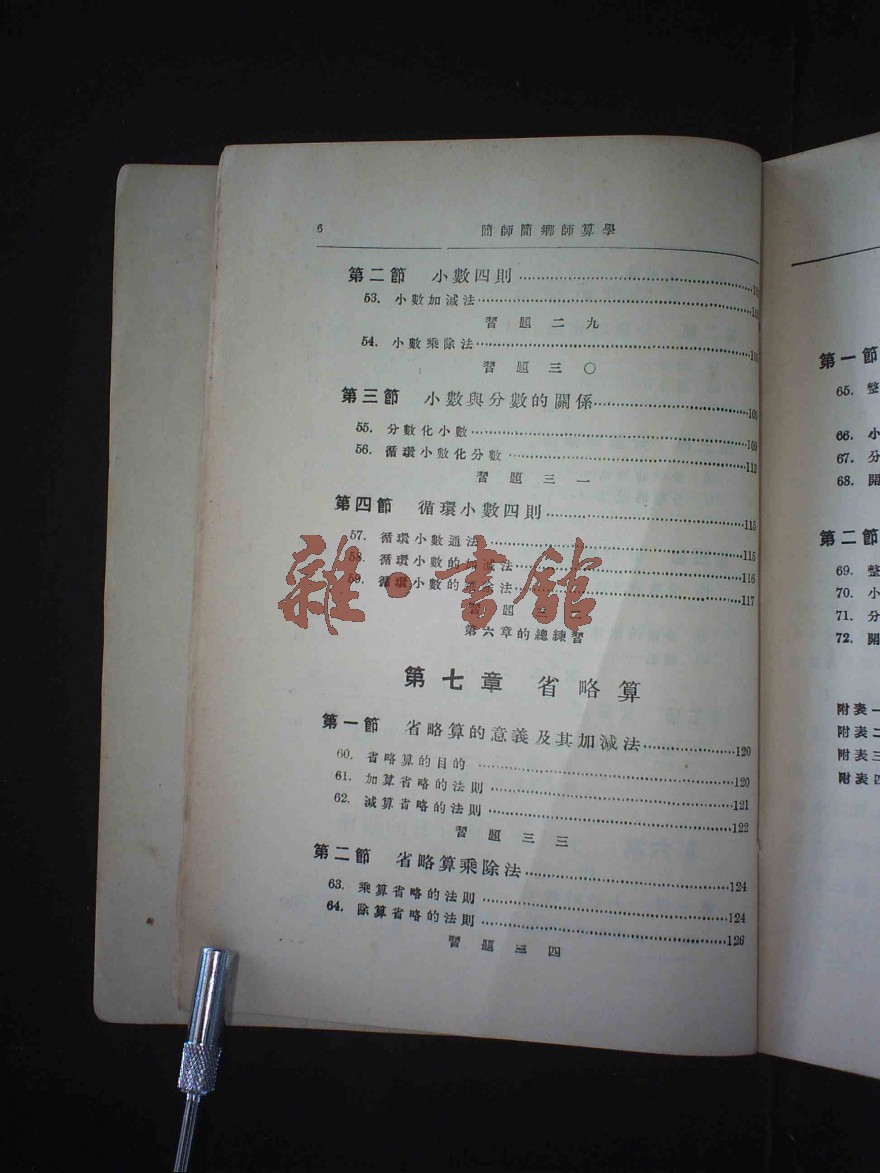 6 簡師簡鄉師算學
第二節 小數四則
53. 小數加減法
習題二九
54. 小數乘除法
習題三〇
第三節 小數與分數的關係 109
55. 分數化小數 109
56. 循環小數化分數 113
習題三一
第四節 循環小數四則 115
57. 循環小數通法 115
58. 循環小數的加減法 116
59. 循環小數的乘除法 117
習題三二
第六章的總練習
第七章 省略算
第一節 省略算的意義及其加減法 120
60. 省略算的目的 120
61. 加算省略的法則 121
62. 減算省略的法則 122
習題三三
第二節 省略算乘除法 124
63. 乘算省略的法則 124
64. 除算省略的法則 126
習題三四
雜·書館
第一節
65. 整
66. 小
67. 分
68. 開
第二節
69. 整
70. 小
71. 分
72. 開
附表一
附表二
附表三
附表四